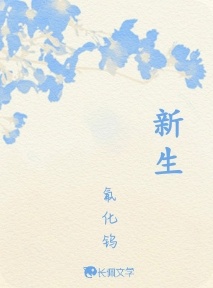 新生
氟化钨
长佩文学